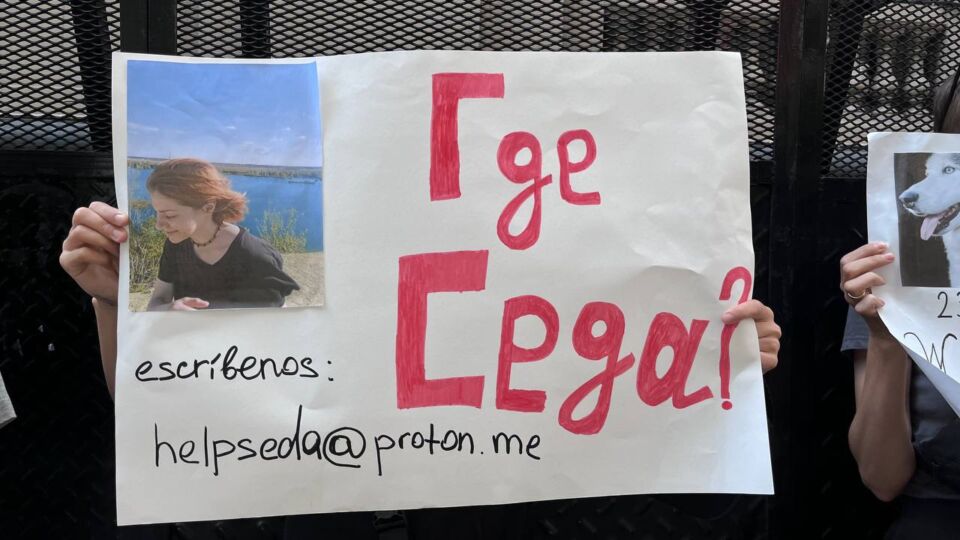 Где
Седа?
escríbenos:
helpseda@proton.me
23
W